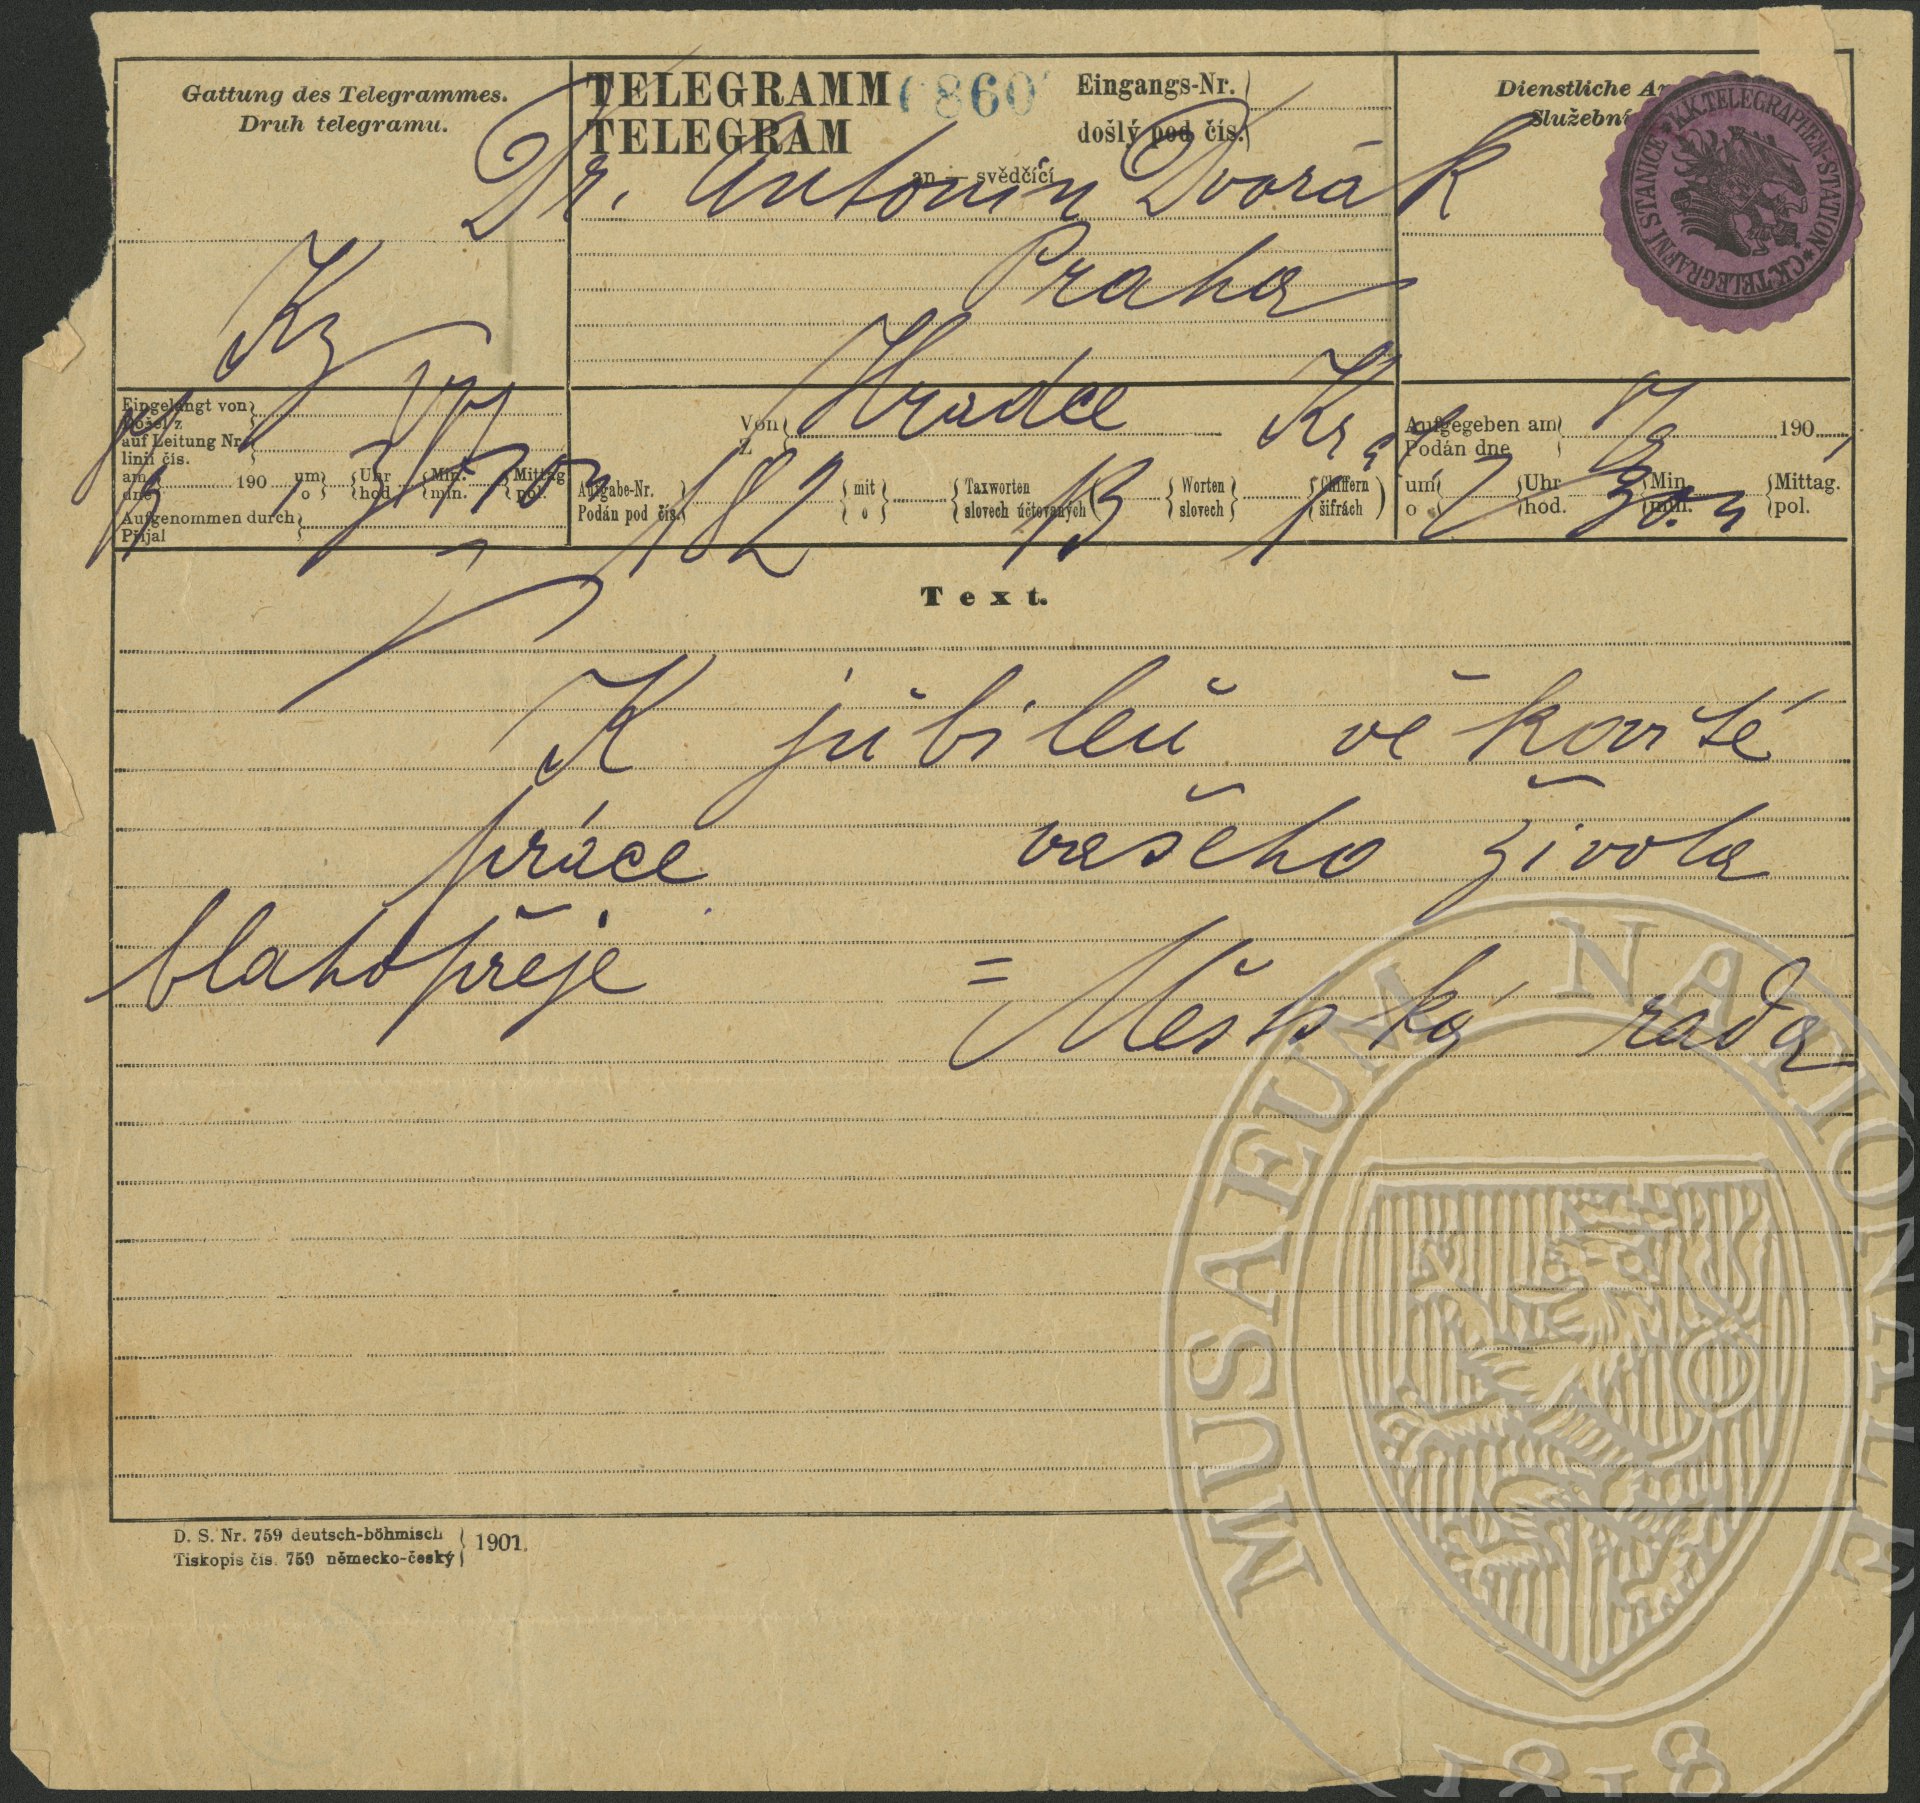 Gattung des Telegrammes.
Druh telegramu.
TELEGRAMM
TELEGRAM
860
Eingangs-Nr.
došlý pod čís.
Dienstliche
Služební
K.K. TELEGRAPHEN-STATION * C.K. TELEGRAFNÍ STANICE *
an — svědčící
Dr. Antonín Dvořák
Praha
Eingelangt von
Došel z
auf Leitung Nr.
linii čís.
am 190 um Uhr Min. Mittag
dne o hod. min. pol.
Aufgenommen durch
Přijal
Von
Z
Hradce Kr
Aufgabe-Nr.
Podán pod čís.
182
mit
o
Taxworten
slovech účtovaných
13
Worten
slovech
Chiffern
šifrách
Aufgegeben am 190
Podán dne
um Uhr Min. Mittag.
o hod. min. pol.
30
Text.
K jubileu
práce vašeho života
blahopřeje = Městská rada
D. S. Nr. 759 deutsch-böhmisch
Tiskopis čís. 759 německo-český
1901.
MUSAEUM NATIONALE
1818